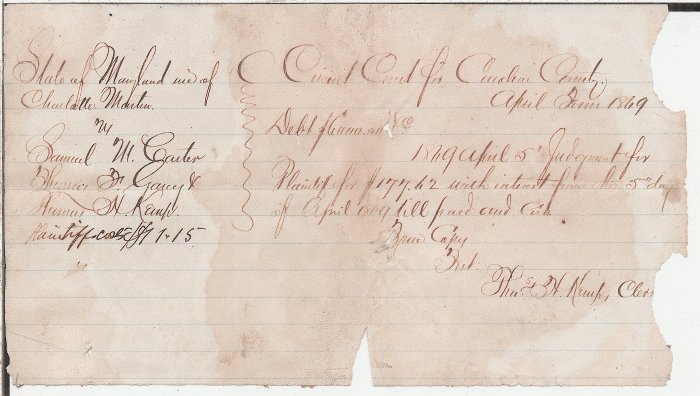 State of Maryland use of
Charlotte Martin
vs
Samuel M. Carter
Thomas F. Garey &
Thomas H. Kemp.
Plaintiff costs $7.15
Circuit Court for Caroline County,
April Term 1869
Debt &c
1869 April 5th Judgment for
Plaintiff for $177.42 with interest from the 5th day
of April 1869 till paid and Costs
True Copy
Test
Thos. H. Kemp, Clerk